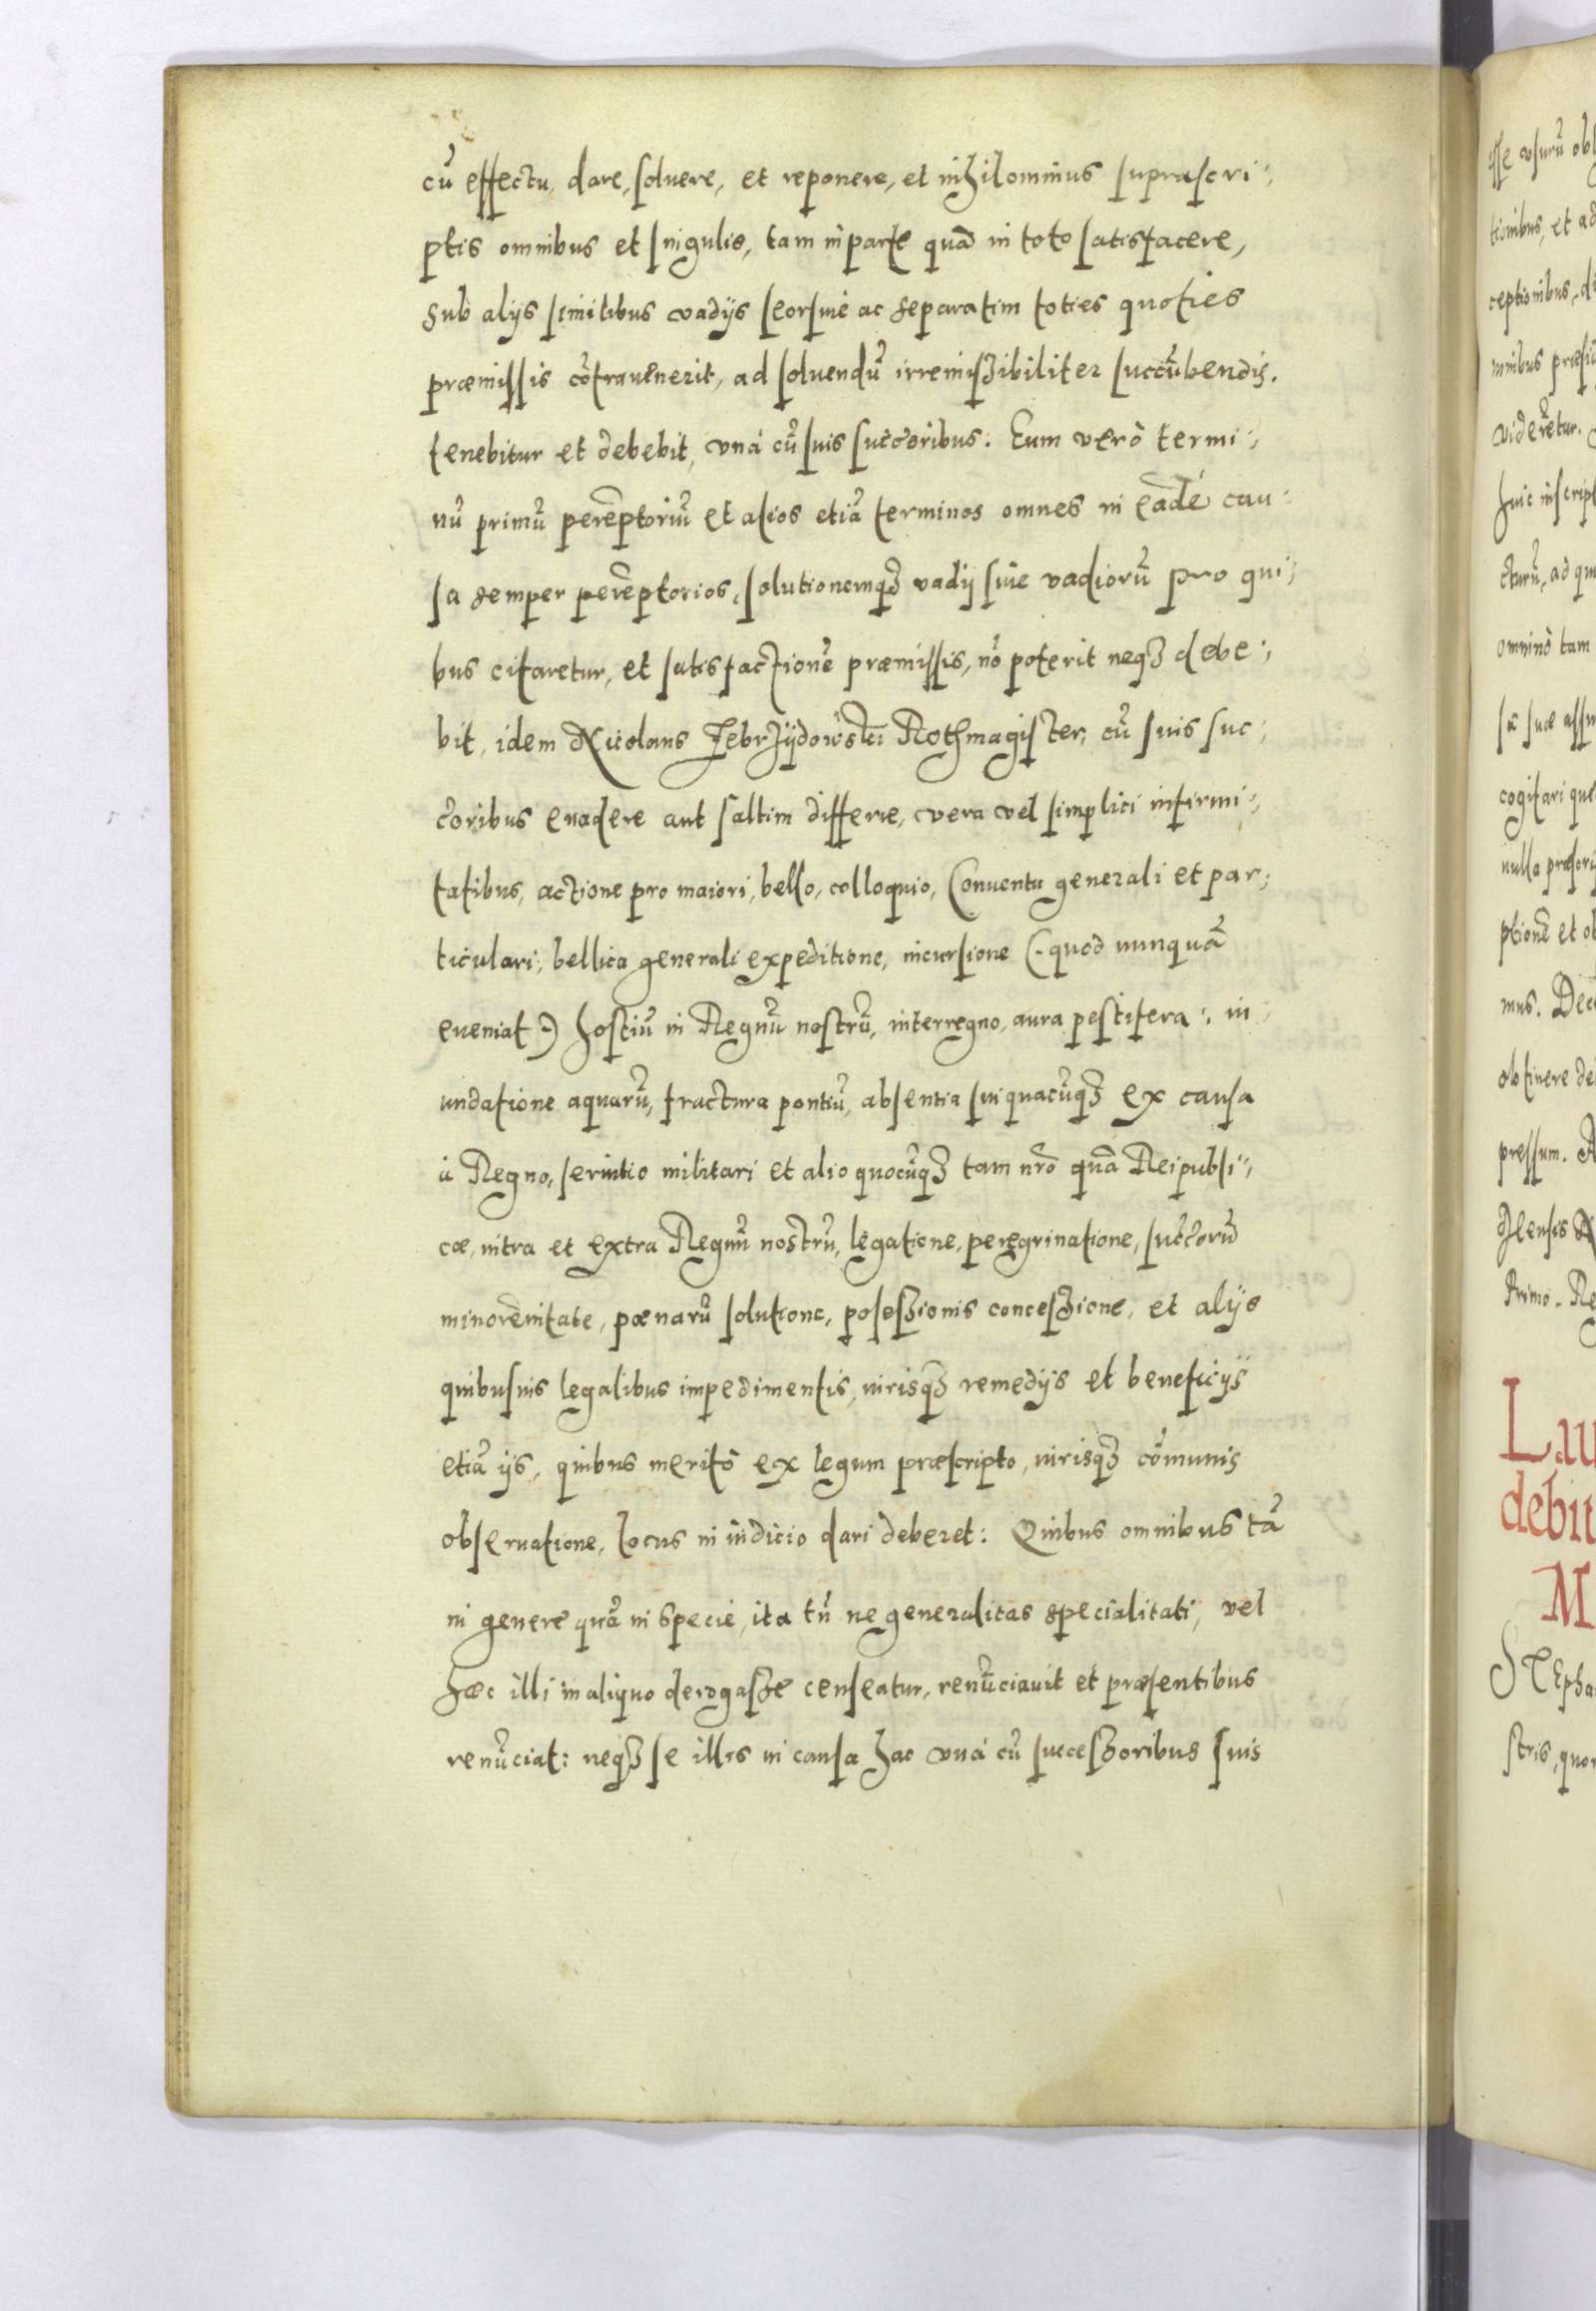 cũ effectu, dare, soluere, et reponere, et nihilominus suprascri:,
ptis omnibus et singulis, tam in parte quã in toto satisfacere,
sub alijs similibus vadijs seorsiue ac separatim toties quoties
præmissis cõtrauenerit, ad soluendũ irremissibiliter succũbendis.
tenebitur et debebit, vnà cũ suis succõribus. Eum verò termi:,
nũ primũ perẽptoriũ et alios etiã terminos omnes in eadẽ cau:
sa semper perẽptorios, solutionemq3 vadij siue vadiorũ pro qui:,
bus citaretur, et satisfactionẽ præmissis, nõ poterit neq3 debe:,
bit, idem Nicolaus Zebrzijdowski Rothmagister, cũ suis suc:,
cõribus euadere aut saltim differre, vera vel simplici infirmi:,
tatibus, actione pro maiori, bello, colloquio, Conuentu generali et par:,
ticulari, bellica generali expeditione, incursione (. quod nunquã
eueniat .) hostiũ in Regnũ nostrũ, interregno, aura pestifera, in:
undatione aquarũ, fractura pontiũ, absentia sui quacũq3 ex causa
à Regno, seruitio militari et alio quocũq3 tam nr̃o quã Reipubli:,
cæ, intra et extra Regnũ nostrũ, legatione, peregrinatione, succõrũ
minorẽnitate, pœnarũ solutione, possessionis concessione, et alijs
quibusuis legalibus impedimentis, iurisq3 remedijs et beneficijs
etiã ijs, quibus meritò ex legum præscripto, iurisq3 cõmunis
obseruatione, locus in iudicio dari deberet: Quibus omnibus tã
in genere quã in specie, ita tñ ne generalitas specialitati, vel
hæc illi in aliquo derogasse censeatur, renũciauit et præsentibus
renũciat: neq3 se illis in causa hac vnà cũ successoribus suis